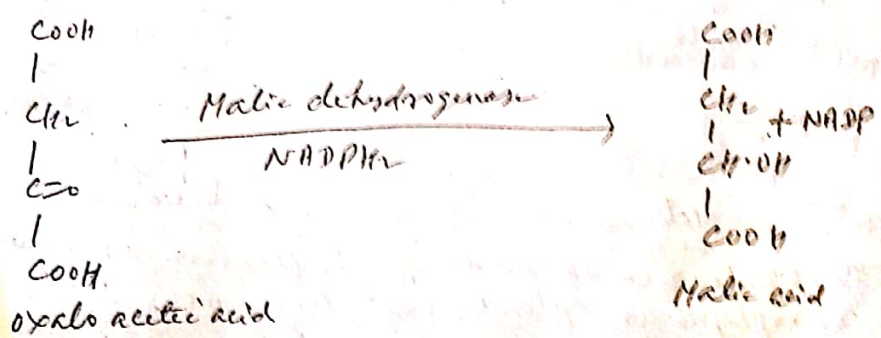 COOH
|
CH2
|
C=O
|
COOH
oxalo acetic acid
Malic dehydrogenase
NADPH2
COOH
|
CH2 + NADP
|
CH·OH
|
COOH
Malic acid